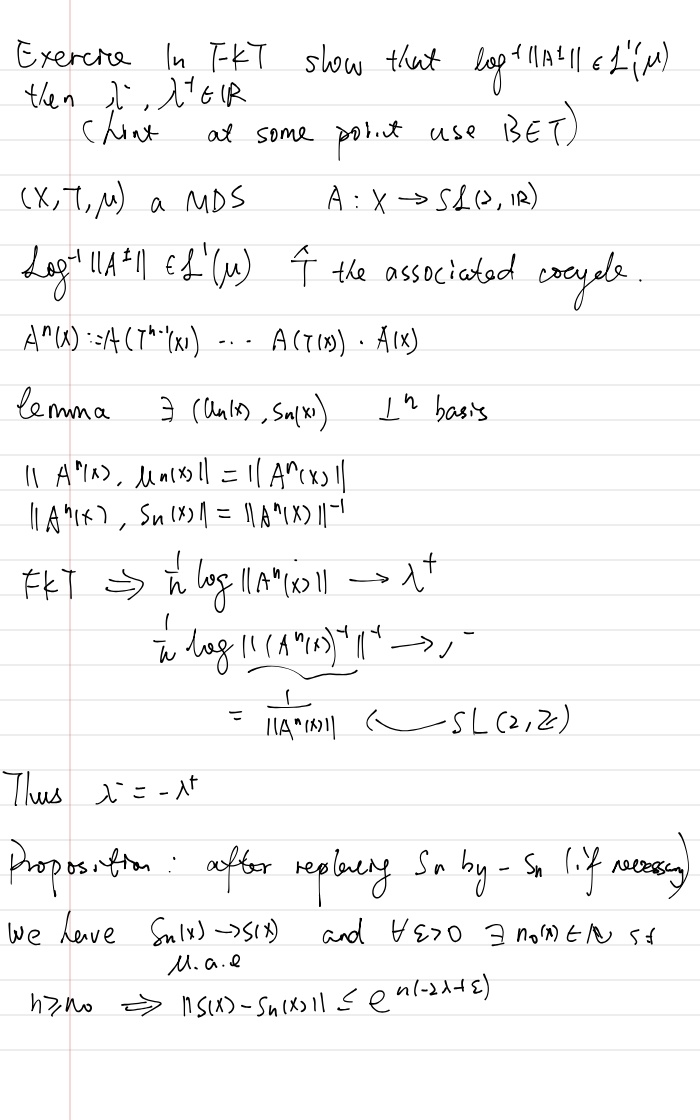 Exercise In FKT show that log⁺‖A^±‖ ∈ L¹(μ)
then λ⁻, λ⁺ ∈ ℝ
(hint at some point use BET)
(X, T, μ) a MDS A : X → SL(2, ℝ)
Log⁺‖A^±‖ ∈ L¹(μ) T̂ the associated cocycle.
Aⁿ(x) := A(Tⁿ⁻¹(x)) ... A(T(x)) · A(x)
lemma ∃ (Un(x), Sn(x)) ⊥ⁿ basis
‖Aⁿ(x), un(x)‖ = ‖Aⁿ(x)‖
‖Aⁿ(x), Sn(x)‖ = ‖Aⁿ(x)‖⁻¹
FKT ⇒ 1/n log ‖Aⁿ(x)‖ → λ⁺
1/n log ‖(Aⁿ(x))⁻¹‖⁻¹ → ⁻
= 1/‖Aⁿ(x)‖ SL(2, ℤ)
Thus λ⁻ = -λ⁺
Proposition : after replacing Sn by -Sn (if necessary)
We have Sn(x) → S(x) and ∀ε>0 ∃ n₀(x) ∈ ℕ st
μ.a.e
n ≥ n₀ ⇒ ‖S(x) - Sn(x)‖ ≤ e^{n(-2λ+ε)}